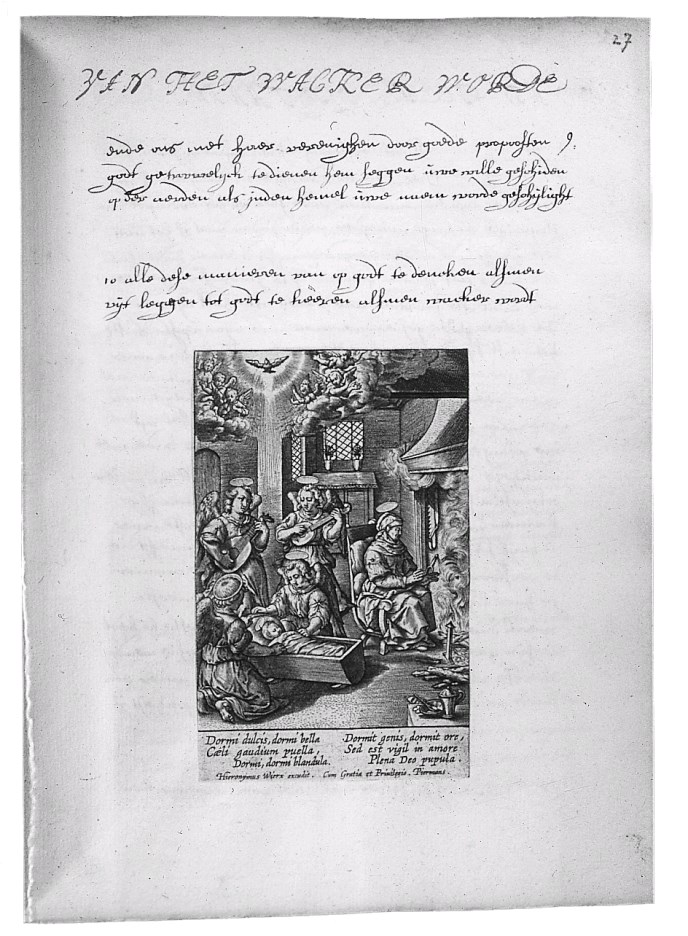 27
VAN HET WACKER WORDE
ende ons met haer verenighen door goede proposten
godt getrouwelijck te dienen hem seggen uwe wille geschiden
op der aerden als inden hemel uwe naem worde
10 alle dese manieren van op godt te dencken alsmen
leggen tot godt te keeren alsmen wacker wort
Dormi dulcis, dormi bella
Cæli gaudium puella,
Dormi, dormi blandula.
Dormit genis, dormit ore,
Sed est vigil in amore
Plena Deo pupula.
Hieronymus Wierx excudit. Cum Gratia et Priuilegio. Piermans.